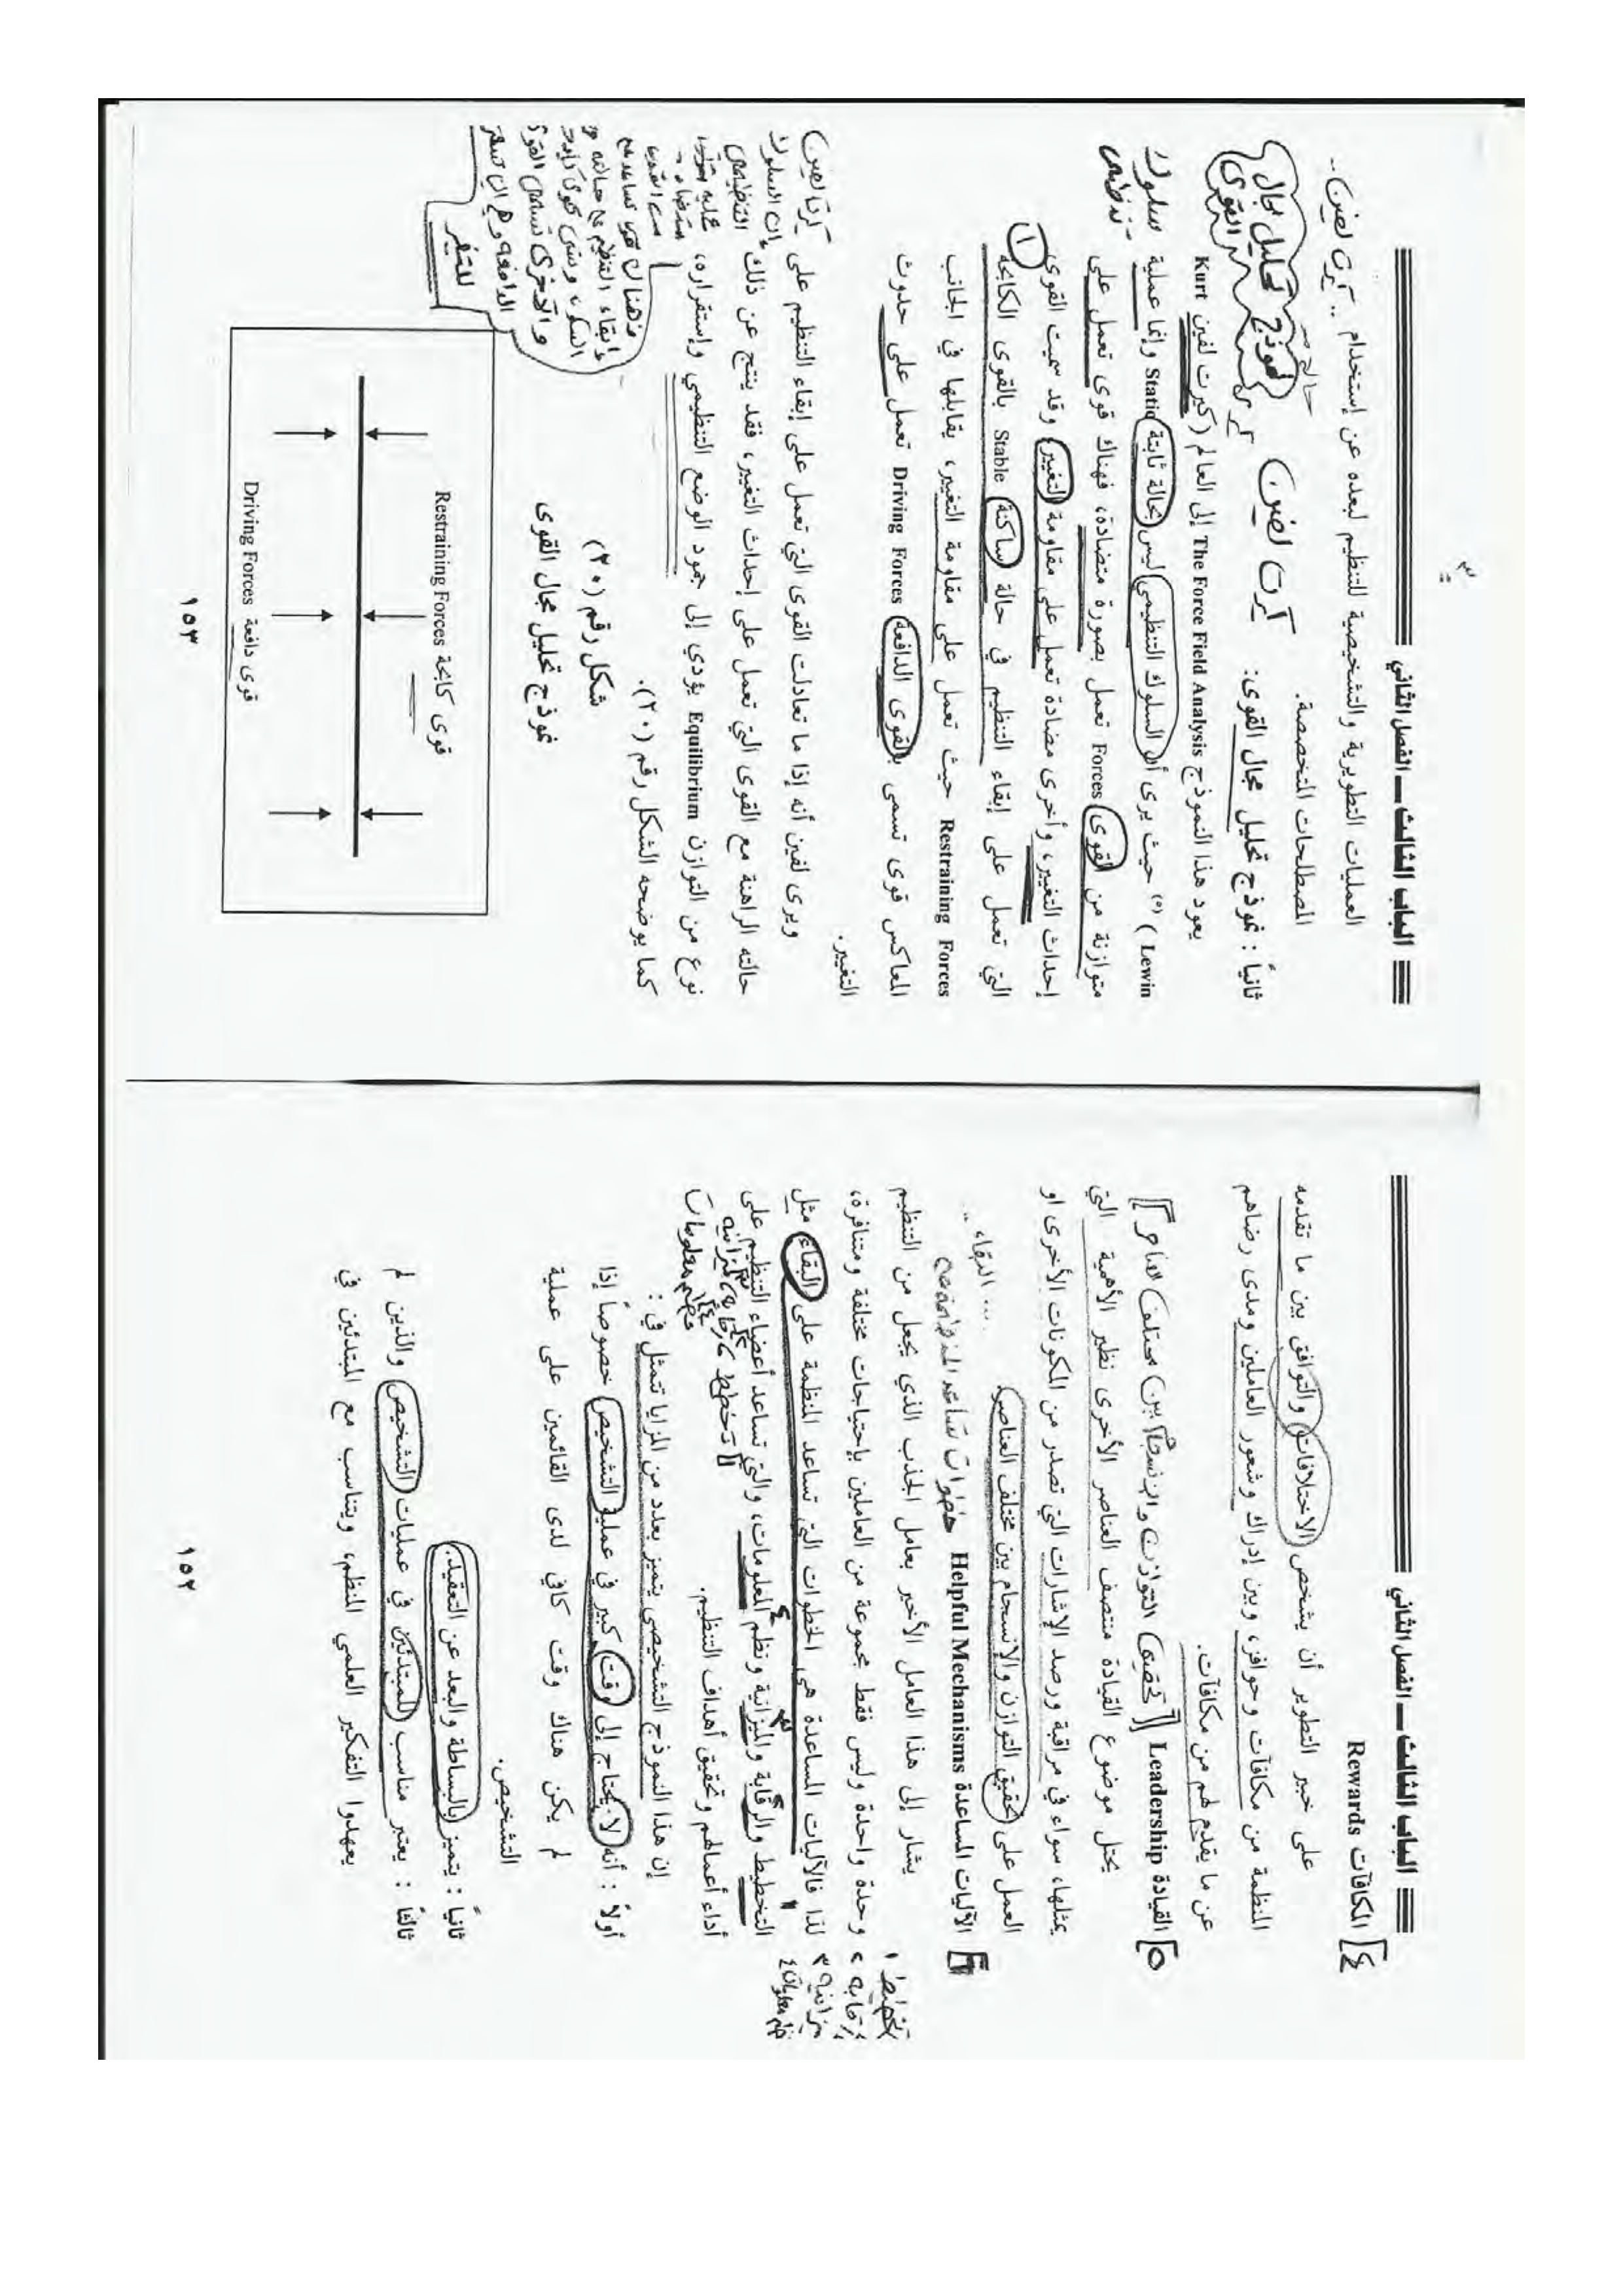 الباب الثالث ــ الفصل الثاني
٤ المكافآت Rewards
على خبير التطوير أن يشخص الاختلافات والتوافق بين ما تقدمه
المنظمة من مكافآت وحوافز، وبين إدراك وشعور العاملين ومدى رضاهم
عن ما يقدم لهم من مكافآت.
٥ القيادة Leadership
يمثل موضوع القيادة منتصف العناصر الأخرى نظير الأهمية التي
يمثلها، سواء في مراقبة ورصد الإشارات التي تصدر من المكونات الأخرى او
العمل على تحقيق التوازن والإنسجام بين مختلف العناصر.
٦ الآليات المساعدة Helpful Mechanisms
يشار إلى هذا العامل الأخير بعامل الجذب الذي يجعل من التنظيم
وحدة واحدة وليس فقط مجموعة من العاملين بإحتياجات مختلفة ومتنافرة،
لذا فالآليات المساعدة هي الخطوات التي تساعد المنظمة على البقاء مثل
التخطيط والرقابة والميزانية ونظم المعلومات، والتي تساعد أعضاء التنظيم على
أداء أعمالهم وتحقيق أهداف التنظيم.
تخطيط ١
رقابه ٢
ميزانيه ٣
نظم معلومات ٤
إن هذا النموذج التشخيصي يتميز بعدد من المزايا تتمثل في :
أولاً : أنه لا يحتاج إلى وقت كبير في عملية التشخيص خصوصاً إذا
لم يكن هناك وقت كافي لدى القائمين على عملية
التشخيص.
ثانياً : يتميز بالبساطة والبعد عن التعقيد.
ثالثاً : يعتبر مناسب للمبتدئين في عمليات التشخيص والذين لم
يعهدوا التفكير العلمي المنظم، ويتناسب مع المبتدئين في
١٥٢
الباب الثالث ــ الفصل الثاني
العمليات التطويرية والتشخيصية للتنظيم لبعده عن إستخدام
المصطلحات المتخصصة.
ثانياً : نموذج تحليل مجال القوى:
كرت لفين
نموذج تحليل مجال القوى
يعود هذا النموذج The Force Field Analysis إلى العالم (كيرت لفين Kurt
Lewin ) (٥) حيث يرى أن السلوك التنظيمي ليس بحالة ثابتة Static وإنما عملية
متوازنة من القوى Forces تعمل بصورة متضادة، فهناك قوى تعمل على
إحداث التغيير، وأخرى مضادة تعمل على مقاومة التغيير، وقد سميت القوى
التي تعمل على إبقاء التنظيم في حالة ساكنة Stable بالقوى الكابحة
Restraining Forces حيث تعمل على مقاومة التغيير، يقابلها في الجانب
المعاكس قوى تسمى بالقوى الدافعة Driving Forces تعمل على حدوث
التغيير.
ويرى لفين أنه إذا ما تعادلت القوى التي تعمل على إبقاء التنظيم على
حالته الراهنة مع القوى التي تعمل على إحداث التغيير، فقد ينتج عن ذلك
نوع من التوازن Equilibrium يؤدي إلى جمود الوضع التنظيمي وإستقراره،
كما يوضحه الشكل رقم (٢٠).
شكل رقم (٢٠)
نموذج تحليل مجال القوى
قوى كابحة Restraining Forces
قوى دافعة Driving Forces
١٥٣